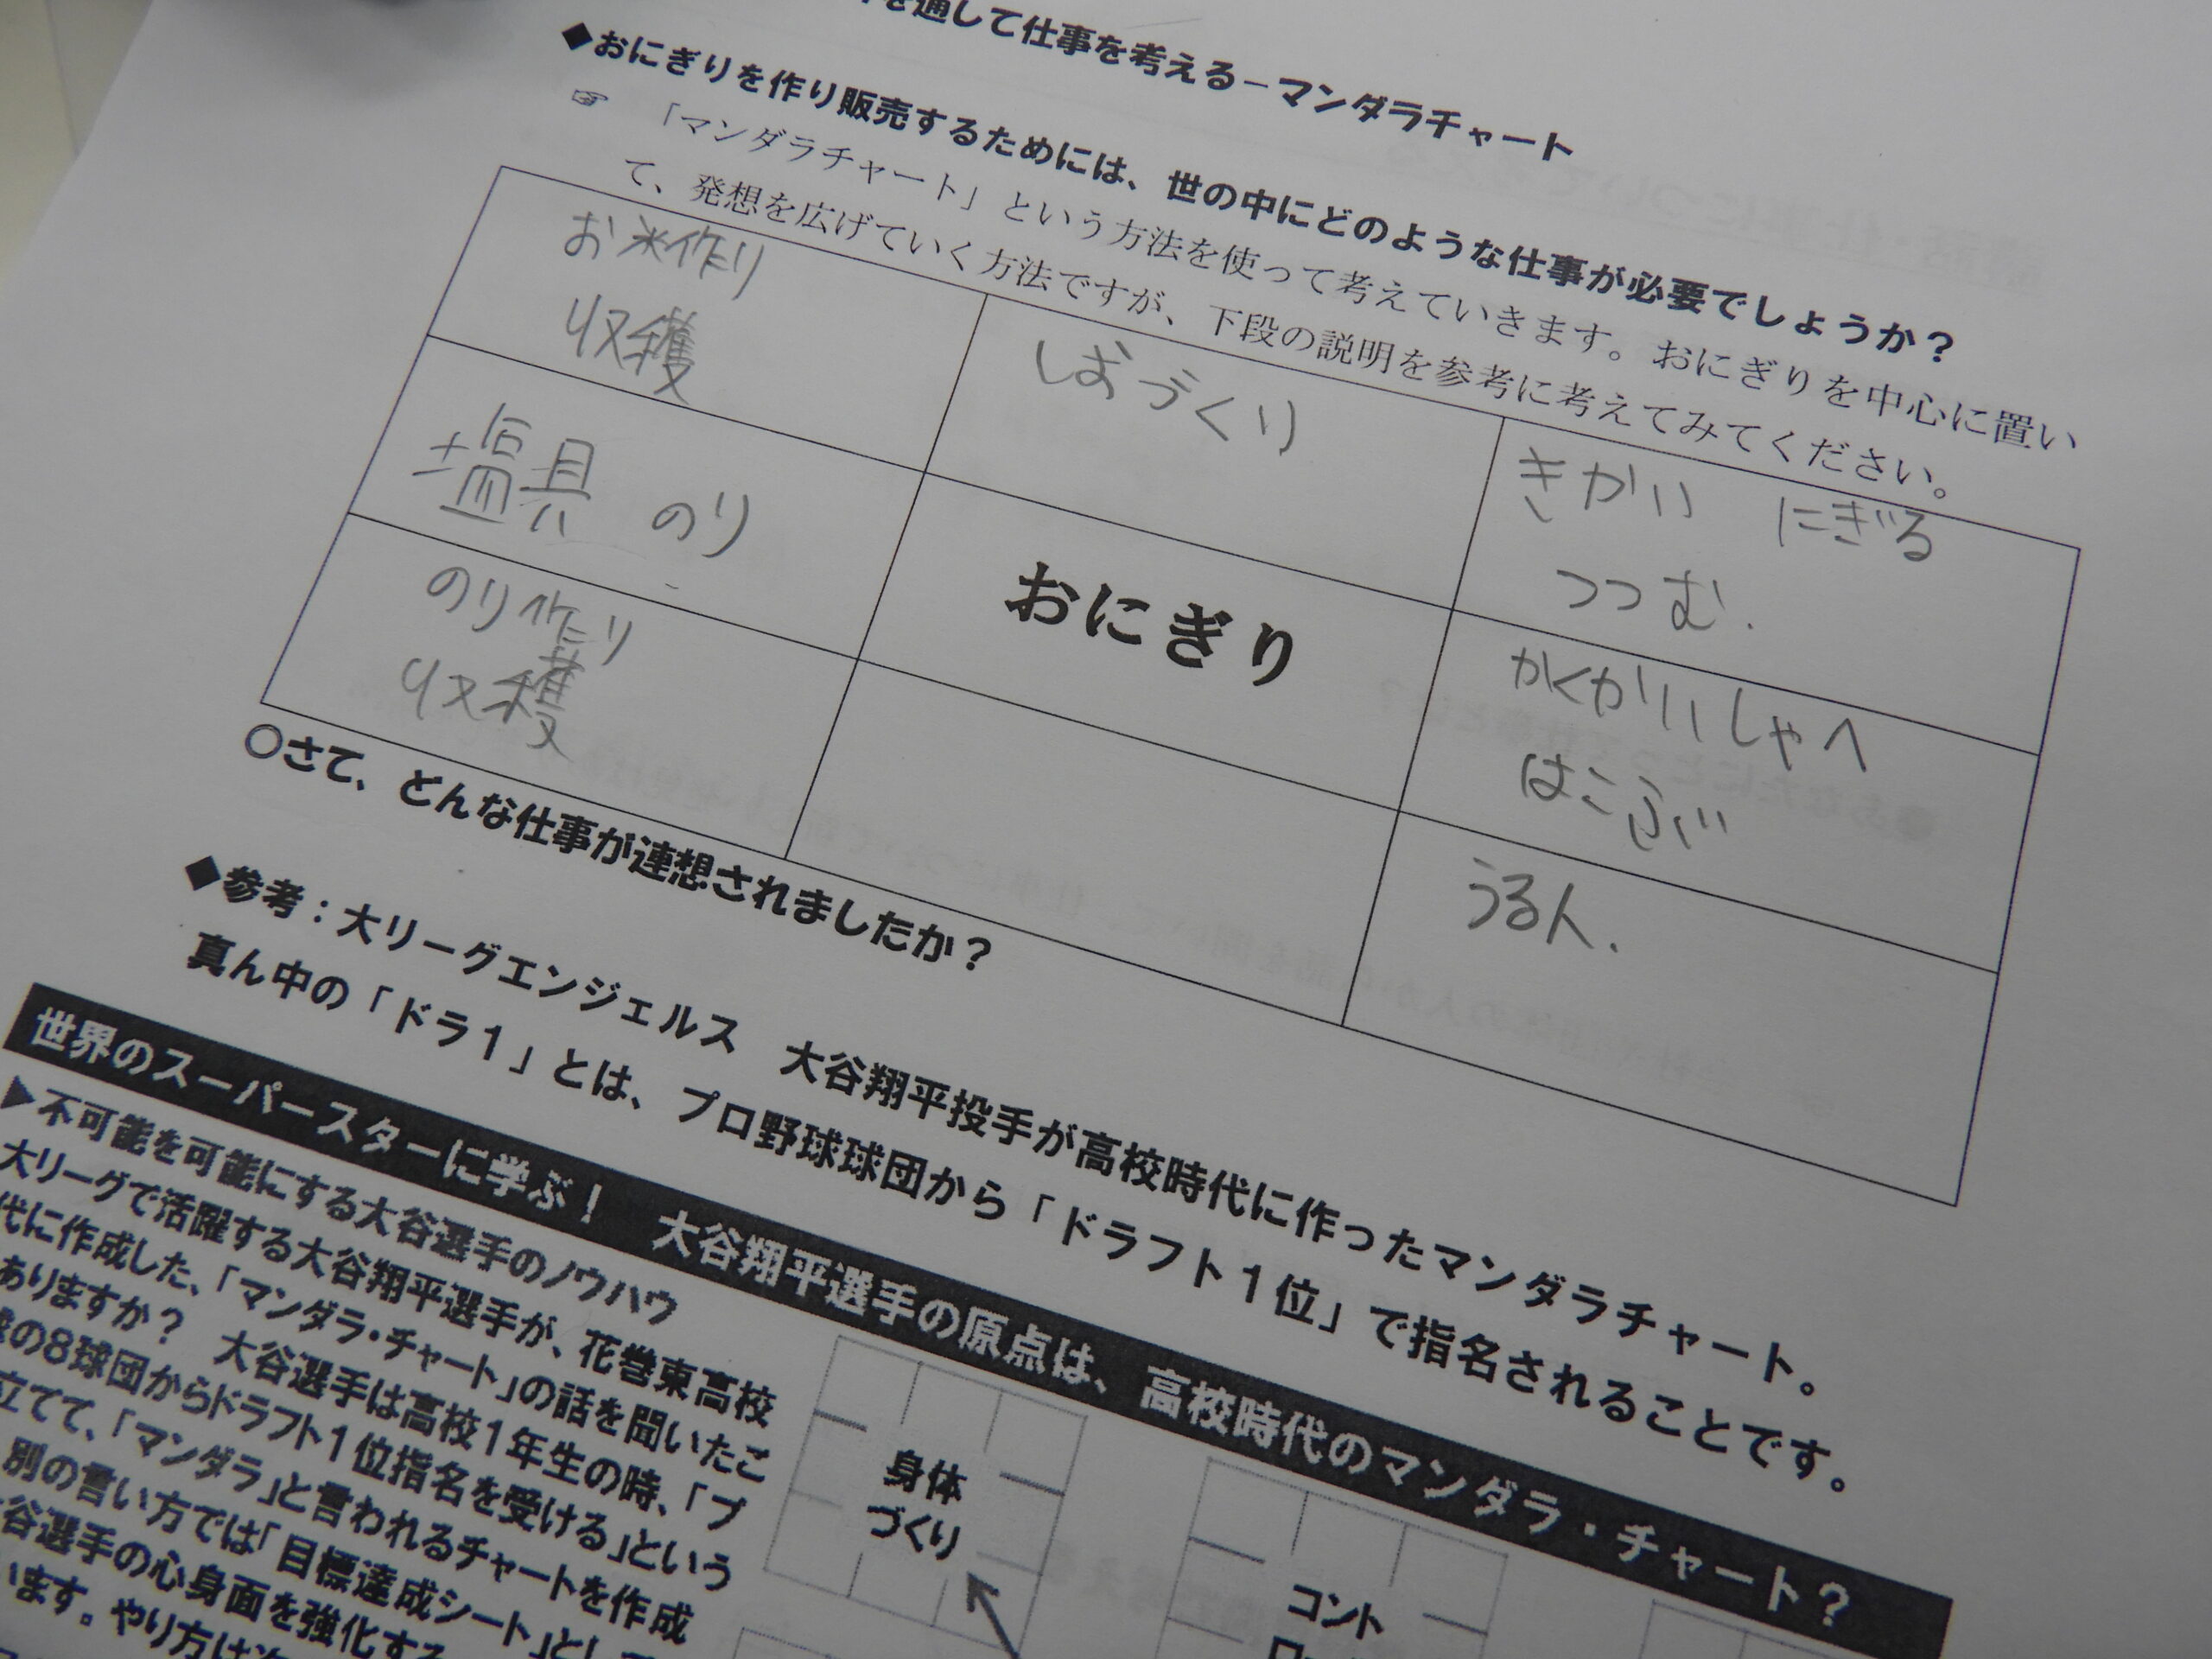 を通して仕事を考える－マンダラチャート
◆おにぎりを作り販売するためには、世の中にどのような仕事が必要でしょうか？
☞ 「マンダラチャート」という方法を使って考えていきます。おにぎりを中心に置い
て、発想を広げていく方法ですが、下段の説明を参考に考えてみてください。
お米作り
収穫
しおづくり
きかい にぎる
つつむ.
塩具 のり
おにぎり
かくかいしゃへ
はこぶ
のり作り
収穫
うる人.
○さて、どんな仕事が連想されましたか？
◆参考：大リーグエンジェルス 大谷翔平投手が高校時代に作ったマンダラチャート。
真ん中の「ドラ１」とは、プロ野球球団から「ドラフト１位」で指名されることです。
世界のスーパースターに学ぶ！ 大谷翔平選手の原点は、高校時代のマンダラ・チャート？
▶不可能を可能にする大谷選手のノウハウ
大リーグで活躍する大谷翔平選手が、花巻東高校
代に作成した、「マンダラ・チャート」の話を聞いたこ
ありますか？ 大谷選手は高校１年生の時、「プ
の８球団からドラフト１位指名を受ける」という
立てて、「マンダラ」と言われるチャートを作成
別の言い方では「目標達成シート」とし
谷選手の心身面を強化する
います。やり方は
身体
づくり
コント